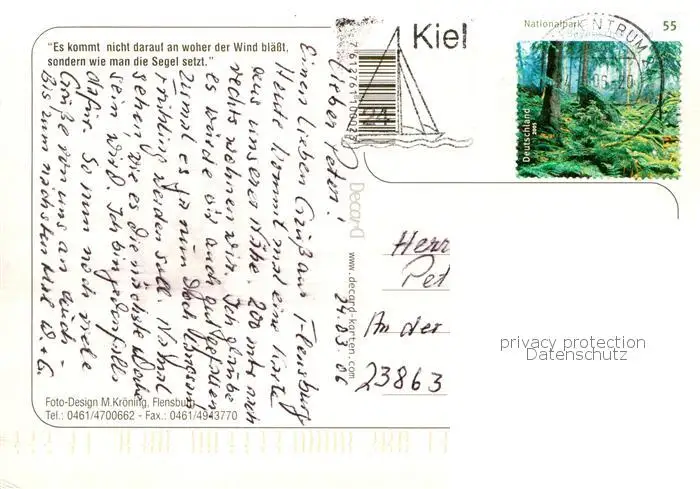 "Es kommt nicht darauf an woher der Wind bläßt,
sondern wie man die Segel setzt."
Lieber Peter!
Einen lieben Gruß aus Flensburg
Heute kommt mal eine Karte
aus unserer Nähe. 200 mtr nach
rechts wohnen wir. Ich glaube
es würde dir auch gut gefallen
zumal es ja nun doch langsam
Frühling werden soll. Mal
sehen wie es die nächste Woche
sein wird. Ich bin jedenfalls
dafür. So nun noch viele
Grüße von uns an euch -
Bis zum nächsten Mal W. + G.
24.03 06
Foto-Design M.Kröning, Flensburg
Tel.: 0461/4700662 - Fax.: 0461/4943770
Decard www.decard-karten.com
Kiel
ZENTRUM
06-20
Nationalpark
55
Deutschland
2005
Herr
Pet
An der
23863
privacy protection
Datenschutz